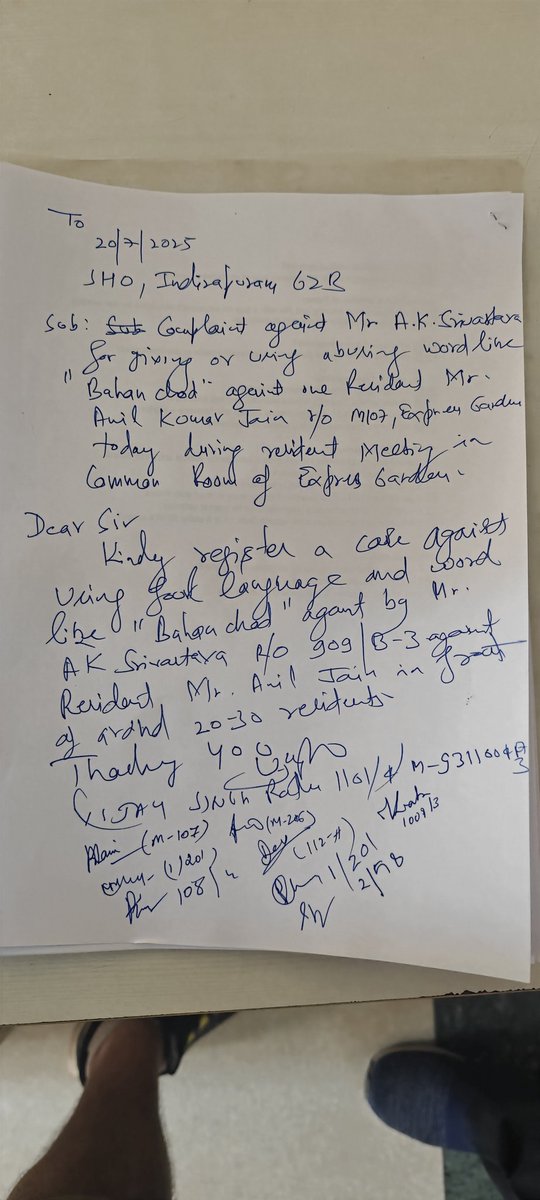 To
20/7/2025
SHO, Indirapuram GZB
Sub: Sub Complaint against Mr A.K. Srivastava
for giving or using abusing word like
"Bahan chod" against one Resident Mr.
Anil Kumar Jain r/o M107, Express Garden
today during resident Meeting in
Common Room of Express Garden.
Dear Sir
Kindly register a case against
using foul language and word
like "Bahan chod" against by Mr.
A K Srivastava R/O 909/B-3 against
Resident Mr. Anil Jain in front
of around 20-30 residents.
Thanking you
VIJAY SINGH 1101/ M-
(M-107) (M-206)
(1/201) (112-A) 1009/3
108/ 1/201
2/98